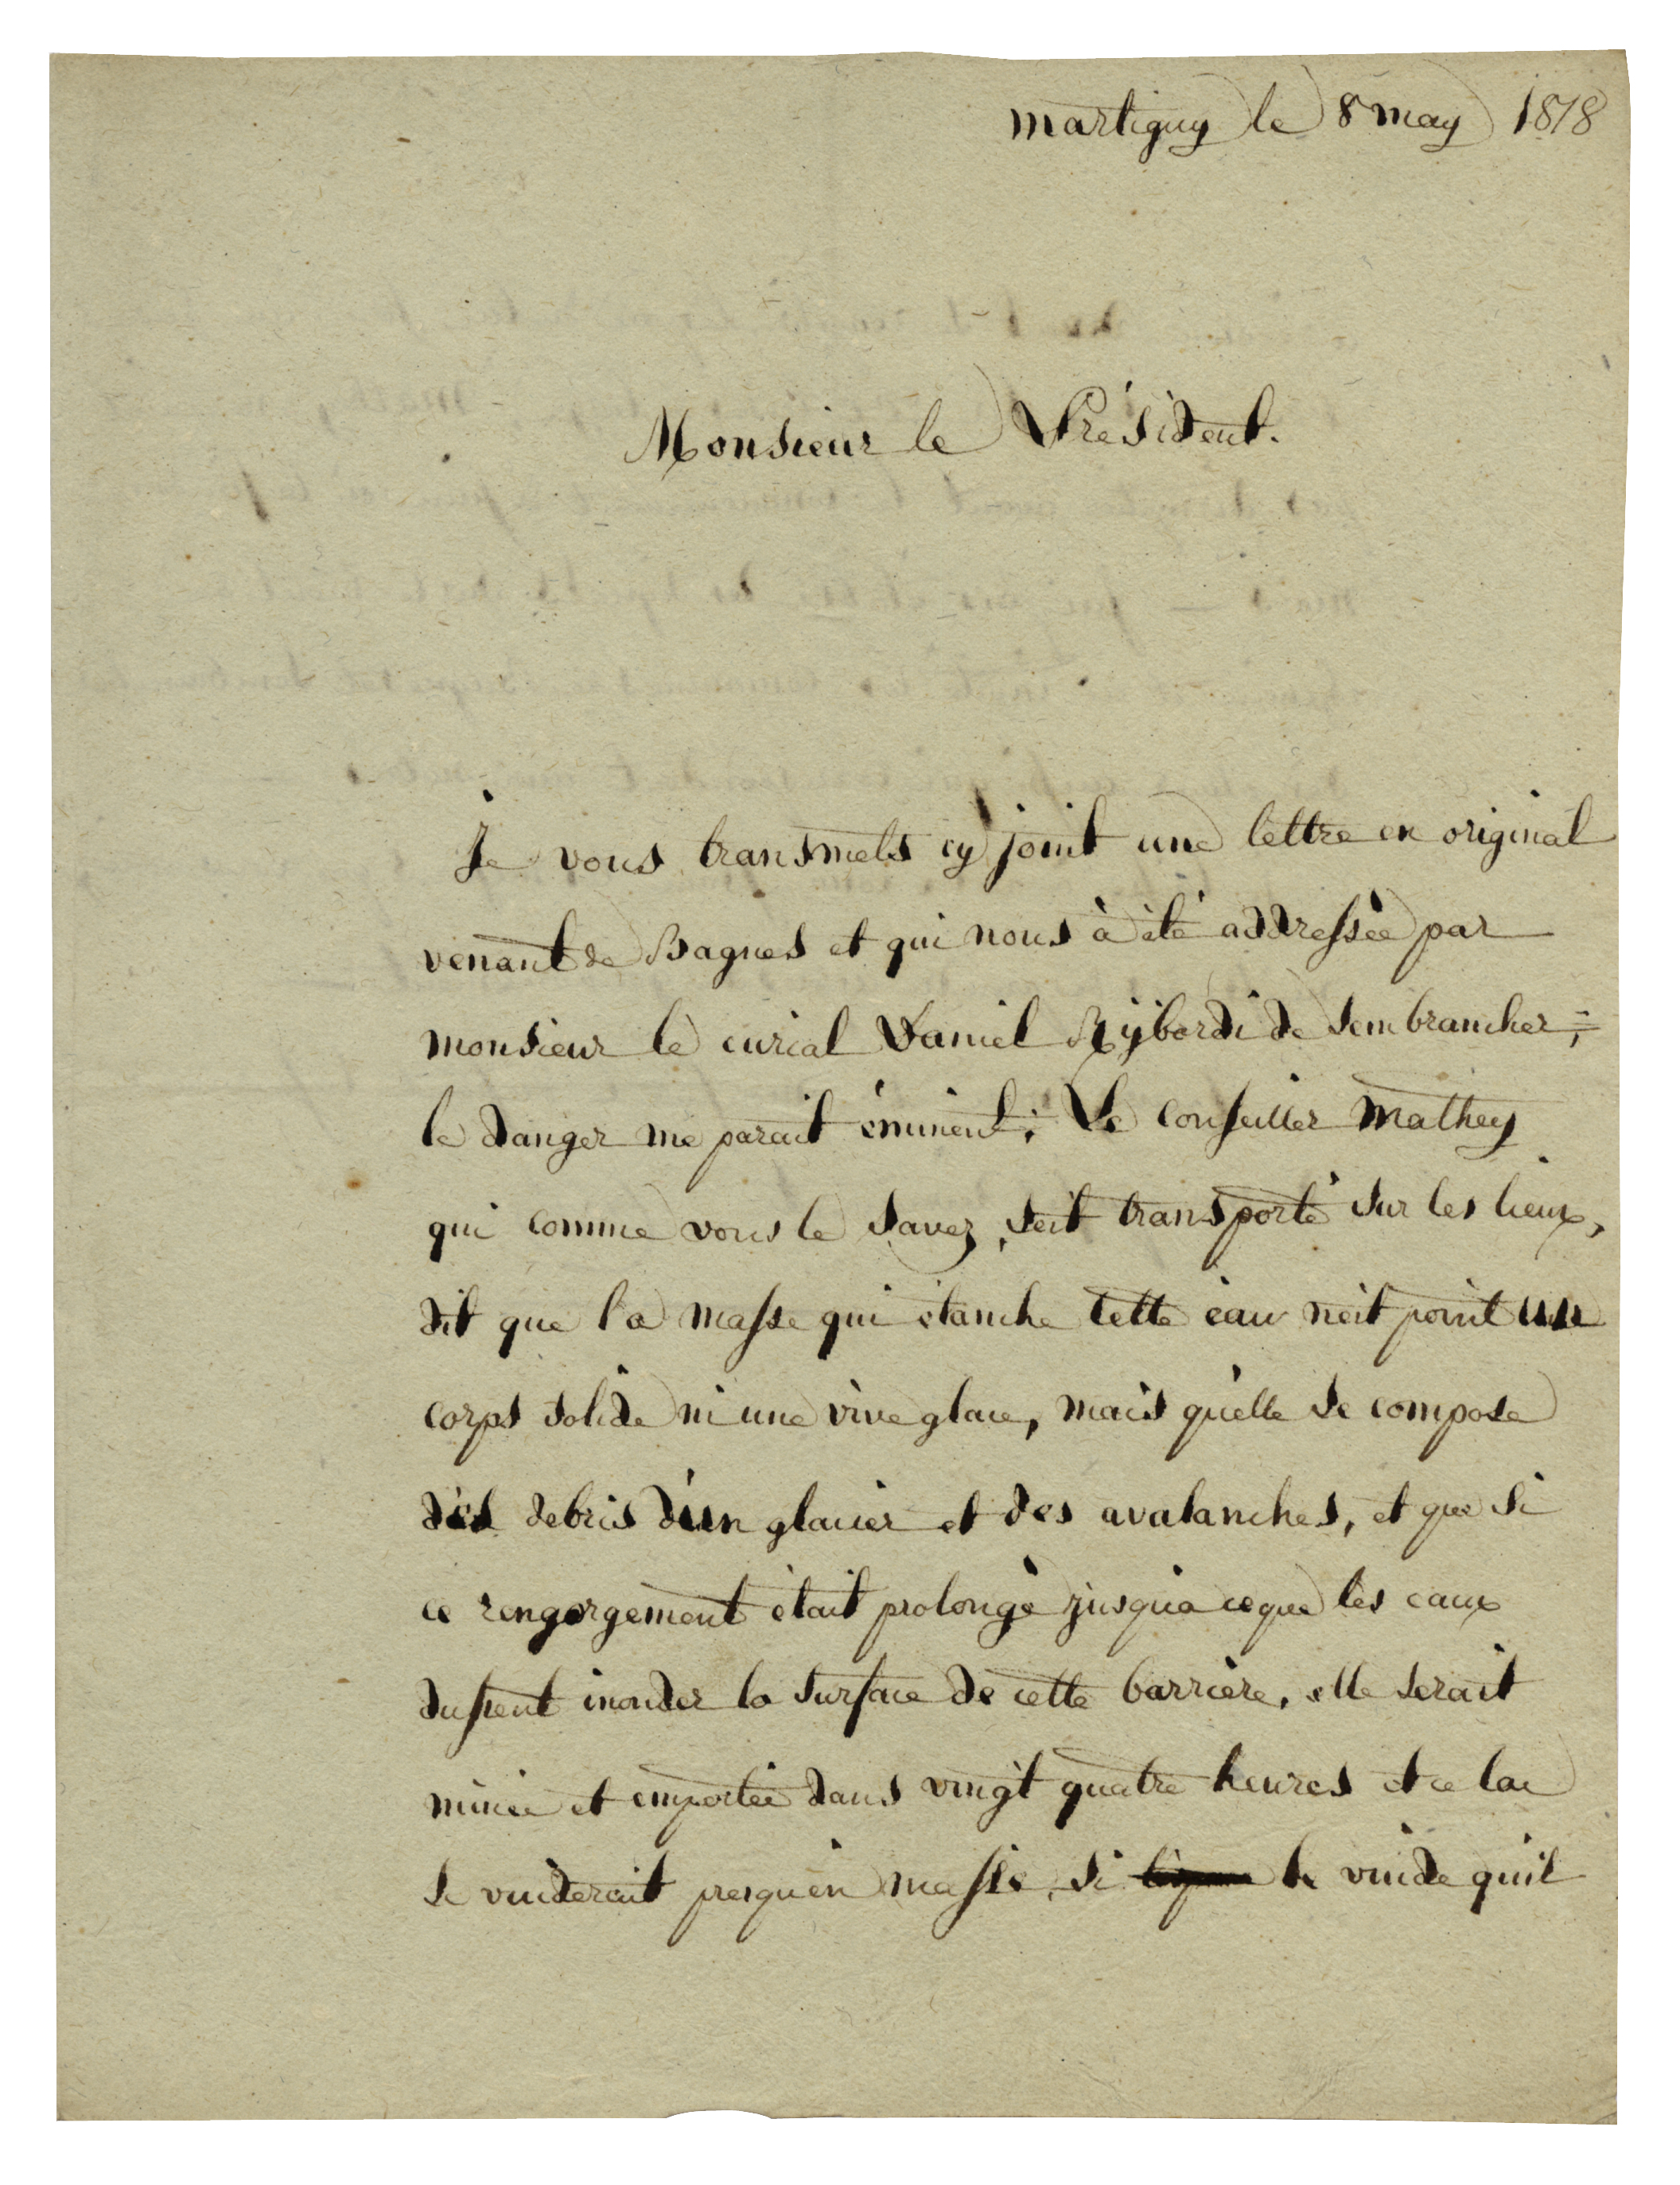 martigny le 8 may 1818
Monsieur le Président.
Je vous transmets cy joint une lettre en original
venant de Bagnes et qui nous à èté addressèe par
monsieur le curial Daniel Rÿbordi de Sembrancher;
le danger me parait éminent; Le Conseiller Mathey
qui comme vous le savez, s'est transporté sur les lieux,
dit que la masse qui étanche cette eau n'est point un
corps solide ni une vive glace, mais qu'elle se compose
des debris d'un glacier et des avalanches, et que si
ce rengorgement était prolongé jusqu'a ceque les eaux
dussent inonder la surface de cette barrière, elle serait
minée et emportée dans vingt quatre heures et ce lac
se vuiderait presqu'en masse, si le vuide qu'il